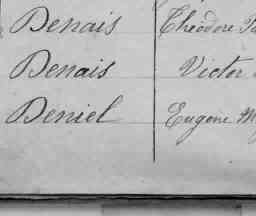 Denais Théodore
Denais Victor
Deniel Eugène